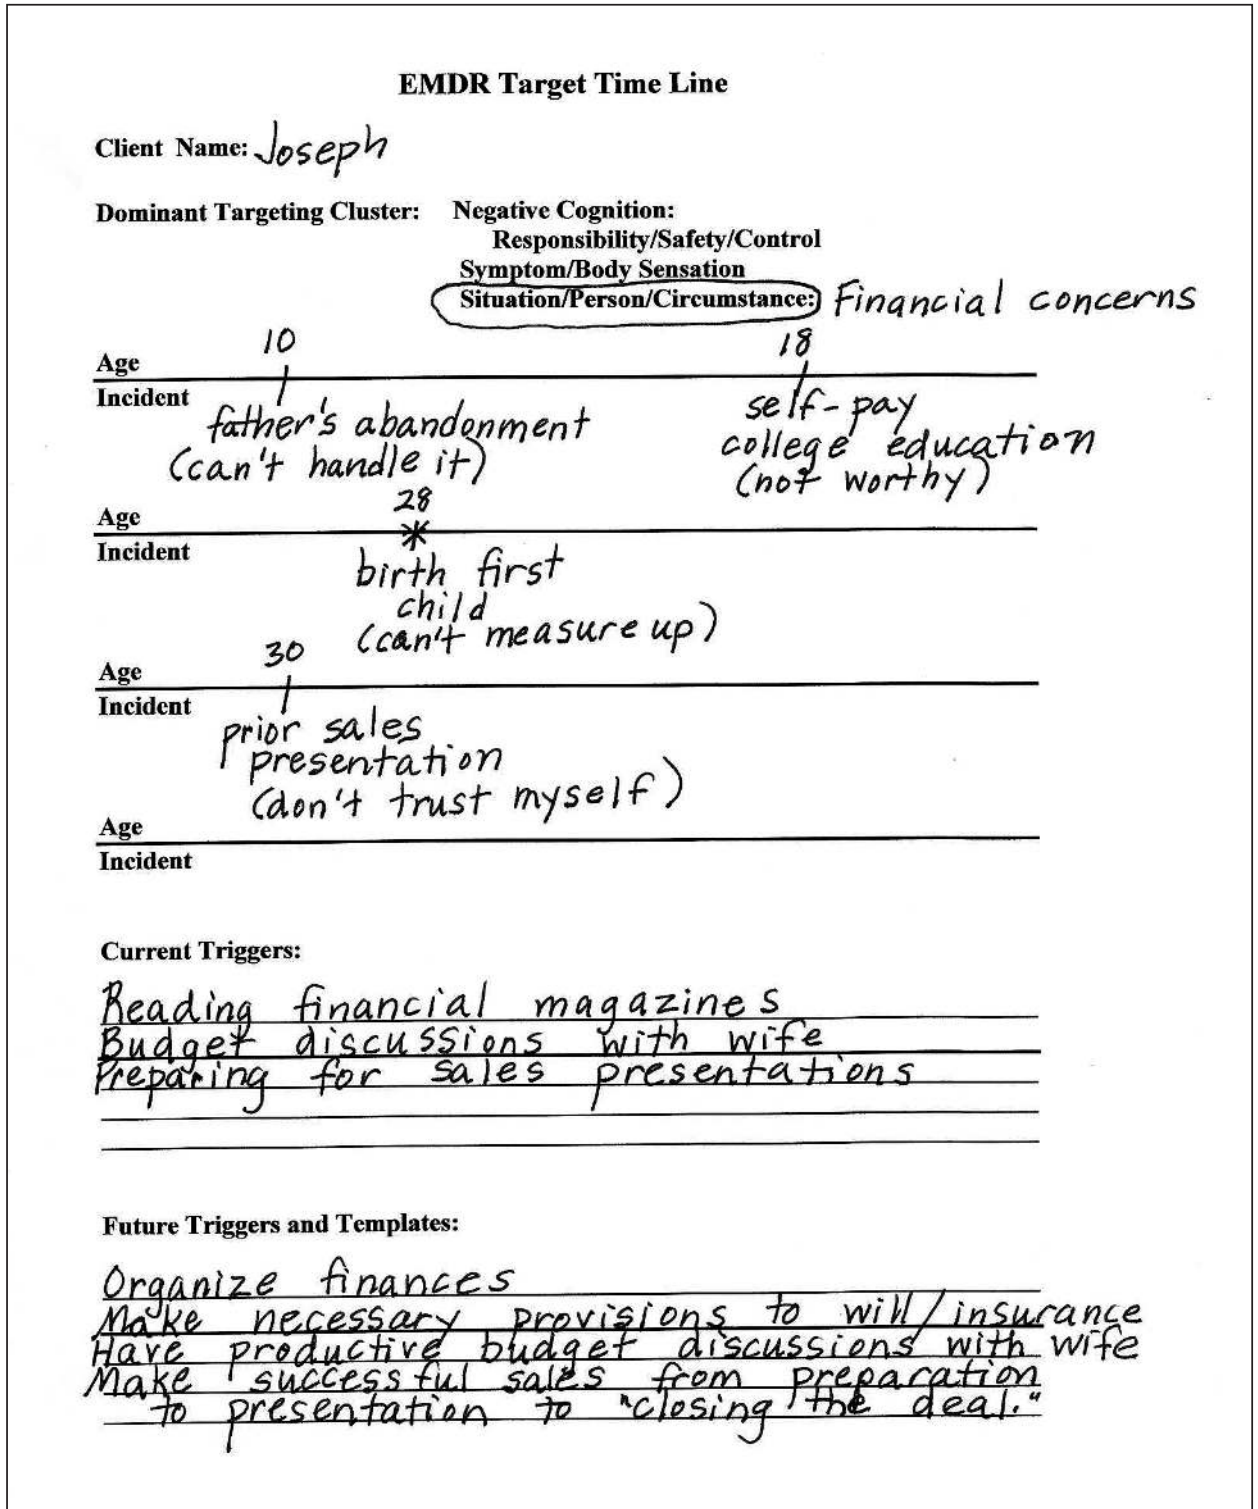 EMDR Target Time Line
Client Name: Joseph
Dominant Targeting Cluster: Negative Cognition:
Responsibility/Safety/Control
Symptom/Body Sensation
Situation/Person/Circumstance: Financial concerns
10 18
Age
Incident
father's abandonment
(can't handle it)
self-pay
college education
(not worthy)
28
Age
Incident
birth first
child
(can't measure up)
30
Age
Incident
prior sales
presentation
(don't trust myself)
Age
Incident
Current Triggers:
Reading financial magazines
Budget discussions with wife
Preparing for sales presentations
Future Triggers and Templates:
Organize finances
Make necessary provisions to will/insurance
Have productive budget discussions with wife
Make successful sales from preparation
to presentation to "closing the deal."